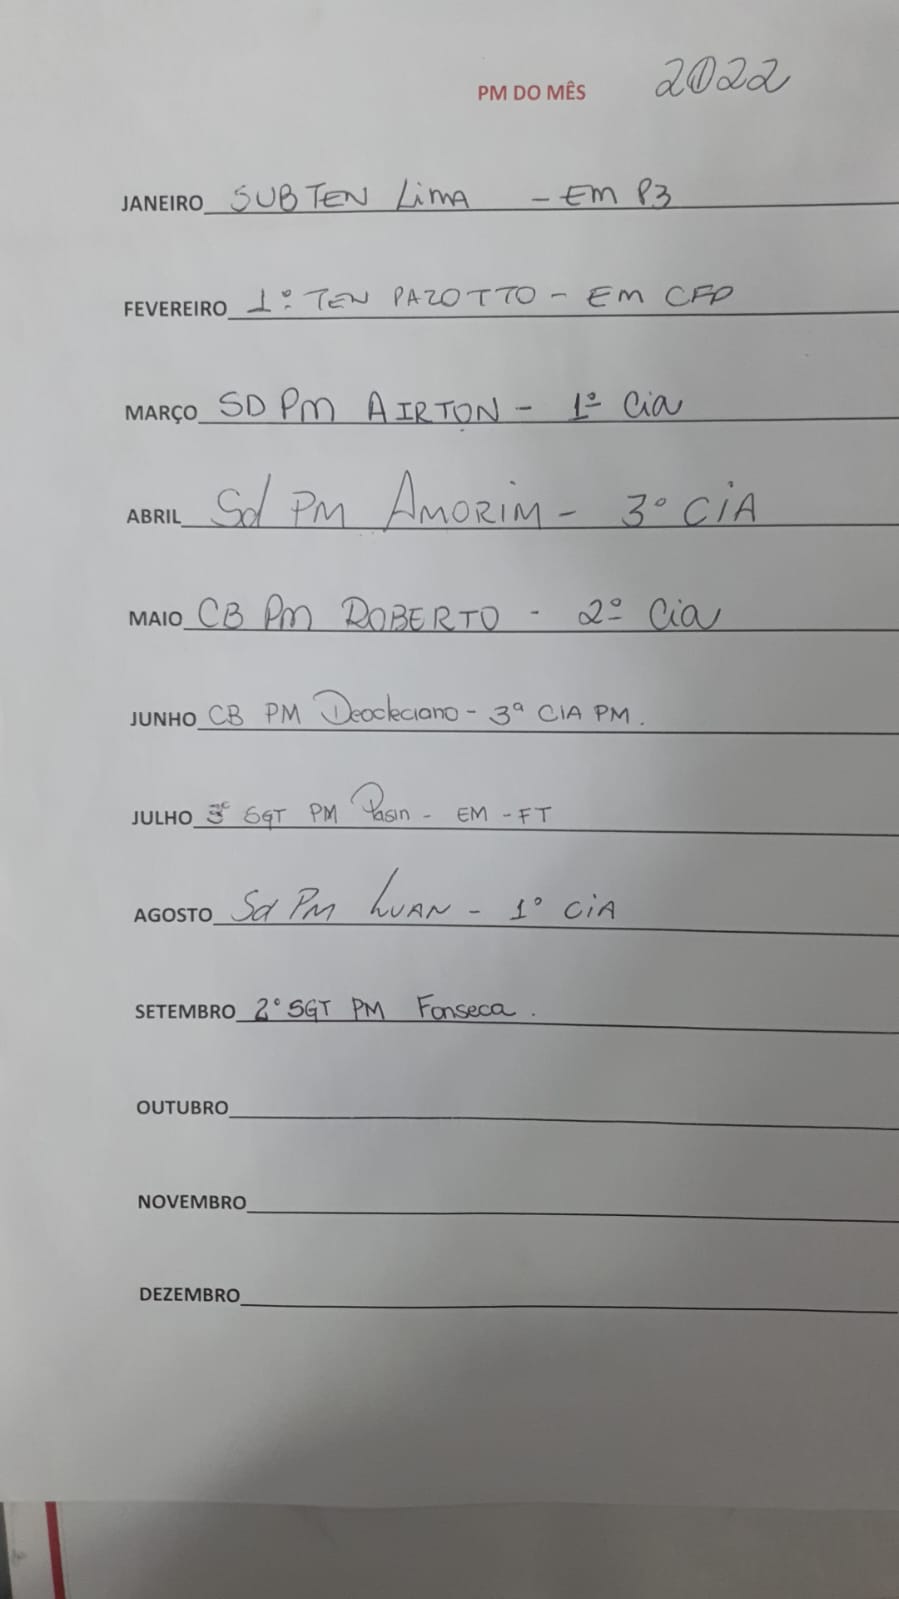 PM DO MÊS 2022
JANEIRO SUBTEN Lima - EM P3
FEVEREIRO 1º TEN PAZOTTO - EM CFP
MARÇO SD PM AIRTON - 1º Cia
ABRIL Sd PM AMORIM - 3º CIA
MAIO CB PM ROBERTO - 2º Cia
JUNHO CB PM Deocleciano - 3ª CIA PM.
JULHO 3º SGT PM Pasin - EM - FT
AGOSTO Sd PM LUAN - 1º CIA
SETEMBRO 2º SGT PM Fonseca.
OUTUBRO
NOVEMBRO
DEZEMBRO